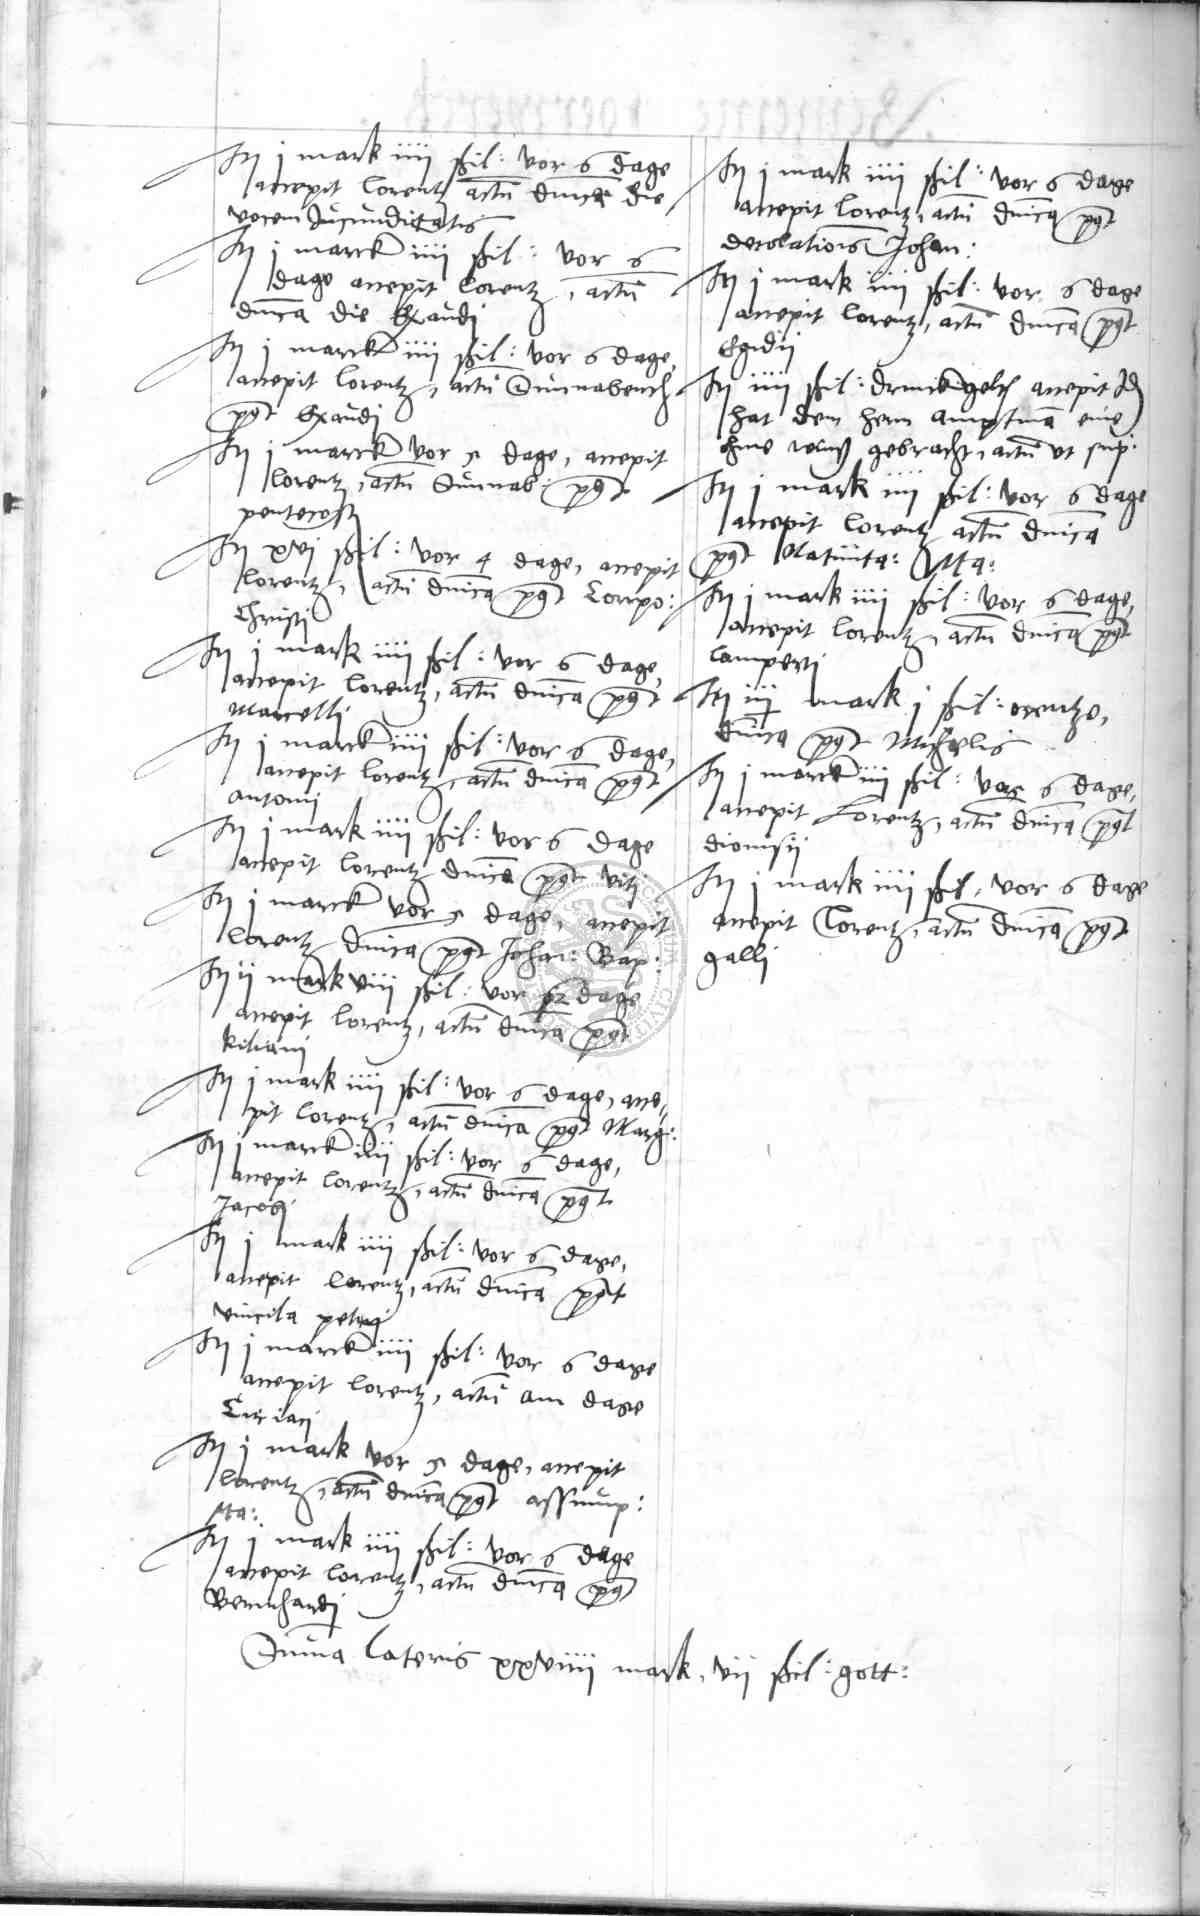 Itē j mark iiij ßil: vor 6 dage
accepit Lorentz actū dnica die
vocem Jucunditatis
Itē j marck iiij ßil: vor 6
dage accepit Lorentz, actū
dnica die Exaudi
Itē j marck iiij ßil: vor 6 dage,
accepit Lorentz, actū Sunnabendh
post Exaudi
Itē j marck vor 5 dage, accepit
Lorentz, actū Sunnab: post
pentecost
Itē xvj ßil: vor 4 dage, accepit
Lorentz, actū dnica post Corpo:
Christi
Itē j mark iiij ßil: vor 6 dage,
accepit Lorentz, actū dnica post
Marcelli
Itē j marck iiij ßil: vor 6 dage,
accepit Lorentz, actū dnica post
Antonij
Itē j mark iiij ßil: vor 6 dage
accepit Lorentz dnica post Viti
Itē j marck vor 5 dage, accepit
Lorentz dnica post Johan: Bap:
Itē ij mark viij ßil: vor 12 dage
accepit Lorentz, actū dnica post
Kiliani
Itē j mark iiij ßil: vor 6 dage, acce,
pit Lorentz, actū dnica post Marg:
Itē j marck iiij ßil: vor 6 dage,
accepit Lorentz, actū dnica post
Jacobi
Itē j mark iiij ßil: vor 6 dage,
accepit Lorentz, actū dnica post
vincula petri
Itē j marck iiij ßil: vor 6 dage
accepit Lorentz, actū am dage
Ciriaci
Itē j mark vor 5 dage, accepit
Lorentz, actū dnica post assump:
Ma:
Itē j mark iiij ßil: vor 6 dage
accepit Lorentz, actū dnica post
Bernhardi
Itē j mark iiij ßil: vor 6 dage
accepit Lorentz, actū dnica post
decolationis Johan:
Itē j mark iiij ßil: vor 6 dage
accepit Lorentz, actū dnica post
Egidij
Itē iiij ßil: drinckgelt accepit Id
hat dem hern Amptmā eine
ohme gebracht, actū ut sup:
Itē j mark iiij ßil: vor 6 dage
accepit Lorentz actū dnica
post Nativita: Ma:
Itē j mark iiij ßil: vor 6 dage,
accepit Lorentz, actū dnica post
Lamperti
Itē iij mark j ßil: Lorentze,
dnica post Michaelis
Itē j marck iiij ßil: vor 6 dage,
accepit Lorentz, actū dnica post
dionisij
Itē j mark iiij ßil, vor 6 dage
accepit Lorentz, actū dnica post
galli
Suma Lateris xxviiij mark, vij ßil: gott: